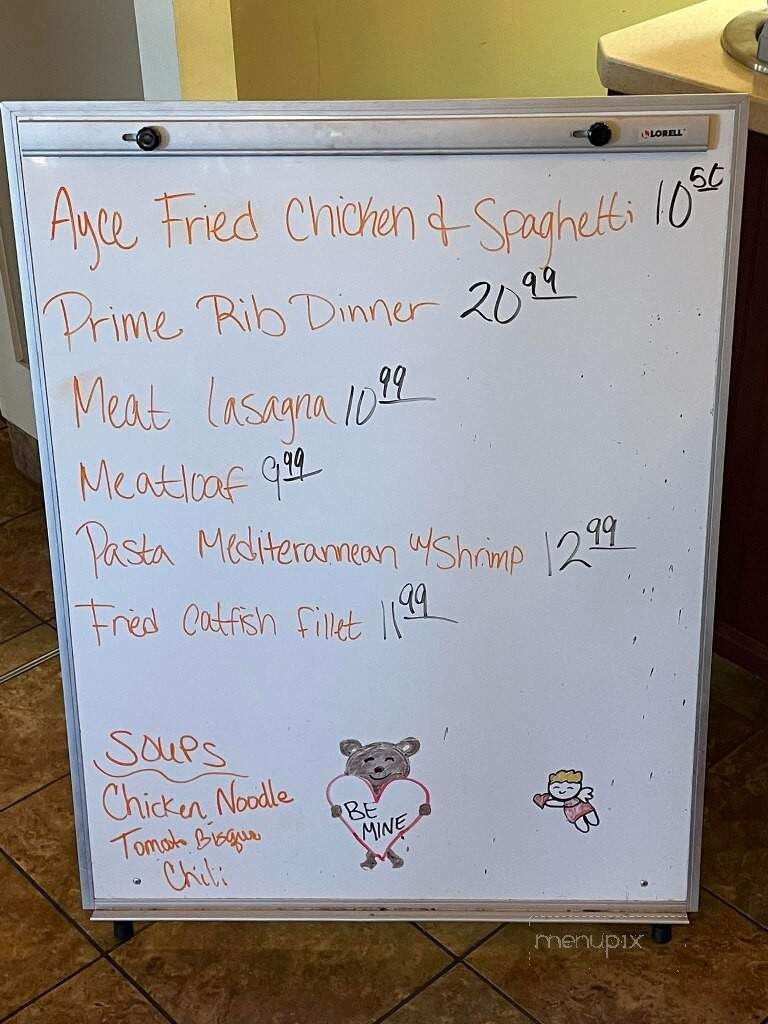 LORELL
Ayce Fried Chicken & Spaghetti 10 50
Prime Rib Dinner 20 99
Meat lasagna 10 99
Meatloaf 9 99
Pasta Mediterannean w/Shrimp 12 99
Fried Catfish fillet 11 99
Soups
Chicken Noodle
Tomato Bisque
Chili
BE
MINE
menupix